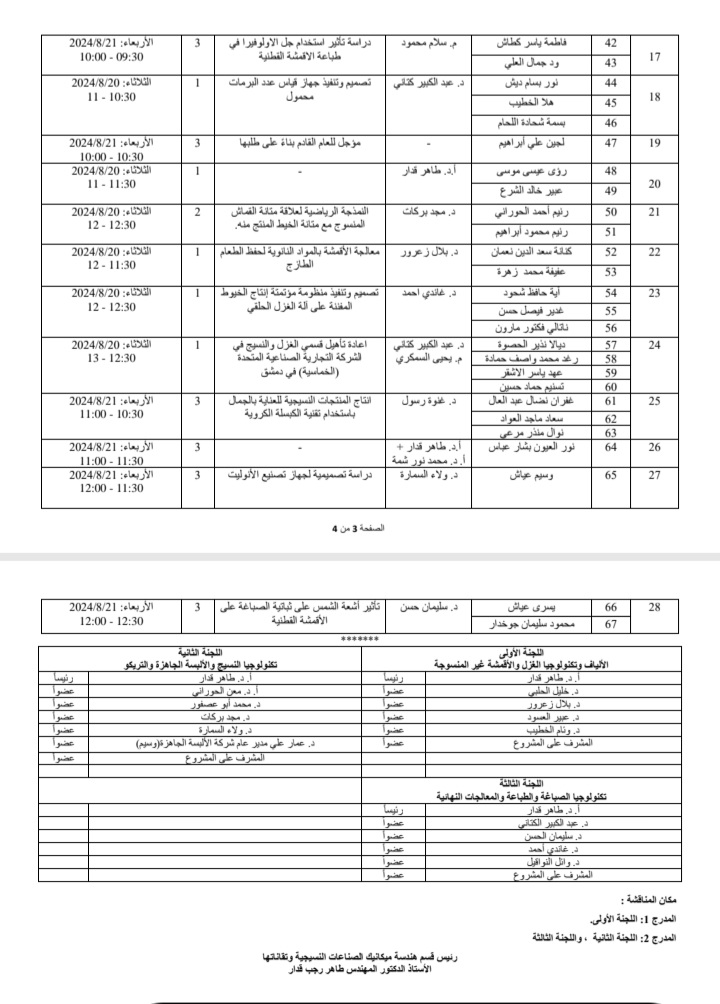 17 42 فاطمة ياسر كطاش م. سلام محمود دراسة تأثير استخدام جل الاولوفيرا في 3 الأربعاء: 2024/8/21
43 ود جمال العلي طباعة الاقمشة القطنية 09:30 - 10:00
18 44 نور بسام ديش د. عبد الكبير كتاني تصميم وتنفيذ جهاز قياس عدد البرمات 1 الثلاثاء: 2024/8/20
45 هلا الخطيب محمول 10:30 - 11
46 بسمة شحادة اللحام
19 47 لجين علي أبراهيم - مؤجل للعام القادم بناءً على طلبها 3 الأربعاء: 2024/8/21
10:30 - 10:00
20 48 رؤى عيسى موسى أ.د. طاهر قدار - 1 الثلاثاء: 2024/8/20
49 عبير خالد الشرع 11:30 - 11
21 50 رنيم أحمد الحوراني د. مجد بركات النمذجة الرياضية لعلاقة متانة القماش 2 الثلاثاء: 2024/8/20
51 رنيم محمود أبراهيم المنسوج مع متانة الخيط المنتج منه. 12:30 - 12
22 52 كنانة سعد الدين نعمان د. بلال زعرور معالجة الأقمشة بالمواد النانوية لحفظ الطعام 1 الثلاثاء: 2024/8/20
53 عفيفة محمد زهرة الطازج 11:30 - 12
23 54 آية حافظ شحود د. غاندي احمد تصميم وتنفيذ منظومة مؤتمتة إنتاج الخيوط 1 الثلاثاء: 2024/8/20
55 غدير فيصل حسن المفننة على آلة الغزل الحلقي 12:30 - 12
56 ناتالي فكتور مارون
24 57 ديالا نذير الحصوة د. عبد الكبير كتاني اعادة تأهيل قسمي الغزل والنسيج في 1 الثلاثاء: 2024/8/20
58 رغد محمد واصف حمادة م. يحيى السمكري الشركة التجارية الصناعية المتحدة 12:30 - 13
59 عهد ياسر الاشقر (الخماسية) في دمشق
60 تسنيم حماد حسين
25 61 غفران نضال عبد العال د. غنوة رسول انتاج المنتجات النسيجية للعناية بالجمال 3 الأربعاء: 2024/8/21
62 سعاد ماجد العواد باستخدام تقنية الكبسلة الكروية 10:30 - 11:00
63 نوال منذر مرعي
26 64 نور العيون بشار عباس أ.د. طاهر قدار + - 3 الأربعاء: 2024/8/21
أ.د. محمد نور شمة 11:30 - 11:00
27 65 وسيم عياش د. ولاء السمارة دراسة تصميمية لجهاز تصنيع الأنوليت 3 الأربعاء: 2024/8/21
11:30 - 12:00
الصفحة 3 من 4
28 66 يسرى عياش د. سليمان حسن تأثير أشعة الشمس على ثباتية الصباغة على 3 الأربعاء: 2024/8/21
67 محمود سليمان جوخدار الأقمشة القطنية 12:30 - 12:00
*******
اللجنة الأولى اللجنة الثانية
الألياف وتكنولوجيا الغزل والأقمشة غير المنسوجة تكنولوجيا النسيج والألبسة الجاهزة والتريكو
أ.د. طاهر قدار رئيساً أ.د. طاهر قدار رئيساً
د. خليل الحلبي عضواً أ.د. معن الحوراني عضواً
د. بلال زعرور عضواً د. محمد أبو عصفور عضواً
د. عبير العسود عضواً د. مجد بركات عضواً
د. وئام الخطيب عضواً د. ولاء السمارة عضواً
المشرف على المشروع عضواً د. عمار علي مدير عام شركة الألبسة الجاهزة(وسيم) عضواً
المشرف على المشروع عضواً
اللجنة الثالثة
تكنولوجيا الصباغة والطباعة والمعالجات النهائية
أ.د. طاهر قدار رئيساً
د. عبد الكبير الكتاني عضواً
د. سليمان الحسن عضواً
د. غاندي أحمد عضواً
د. وائل النواقيل عضواً
المشرف على المشروع عضواً
مكان المناقشة :
المدرج 1: اللجنة الأولى.
المدرج 2: اللجنة الثانية ، واللجنة الثالثة
رئيس قسم هندسة ميكانيك الصناعات النسيجية وتقاناتها
الأستاذ الدكتور المهندس طاهر رجب قدار